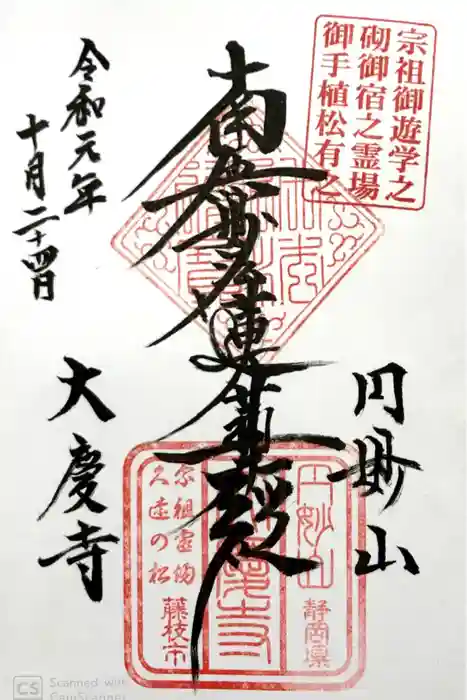 宗祖御遊学之
砌御宿之霊場
御手植松有之
円妙山
南無妙法蓮華経
令和元年
十月二十四日
大慶寺
円妙山
静岡県
大慶寺
宗祖霊跡
久遠の松
藤枝市
CS
Scanned with
CamScanner